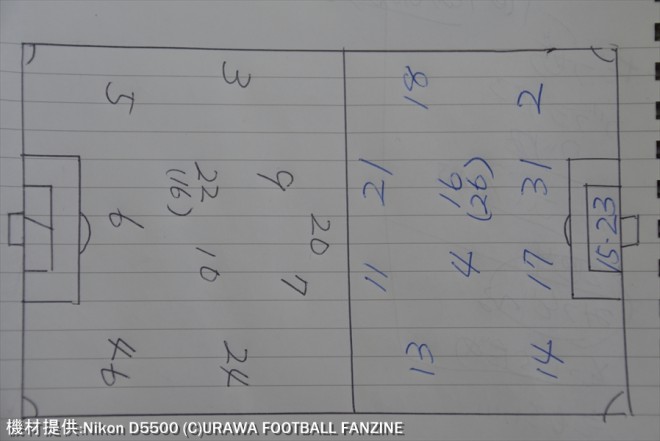 3
5
9
22
(16)
20
6
10
7
24
46
1
18
2
21
16
(26)
31
15·23
11
4
17
13
14
機材提供:Nikon D5500 (C)URAWA FOOTBALL FANZINE